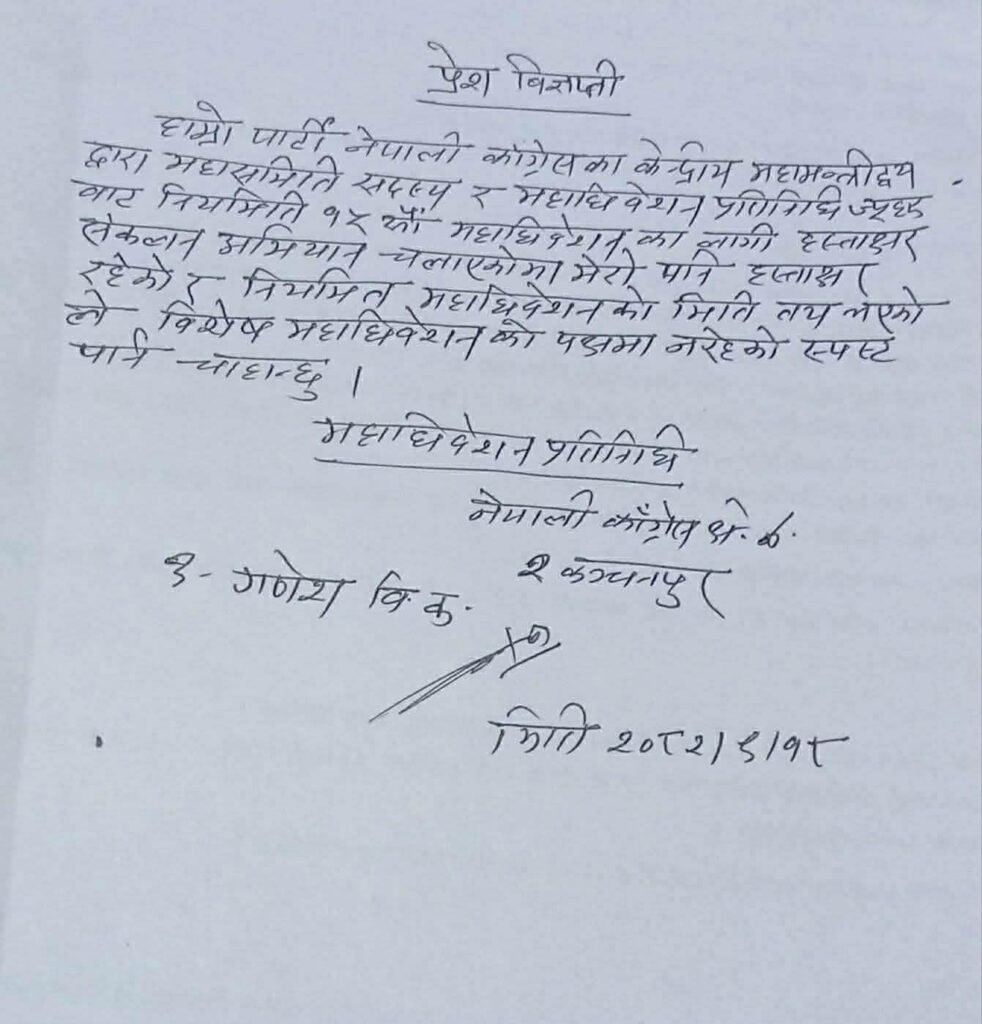 प्रेश विज्ञप्ती
हाम्रो पार्टी नेपाली काँग्रेसका केन्द्रिय महामन्त्रीद्वय
द्वारा महासमिति सदस्य र महाधिवेशन प्रतिनिधि ज्यूहरु
बाट नियमिति १५ औं महाधिवेशन का लागी हस्ताक्षर
संकलन अभियान चलाएकोमा मेरो पनि हस्ताक्षर
रहेको र नियमित महाधिवेशन को मिति तय भएको
ले विशेष महाधिवेशन को पक्षमा नरहेको स्पस्ट
पार्न चाहान्छु ।
महाधिवेशन प्रतिनिधि
नेपाली काँग्रेस क्षे. नं.
२ कञ्चनपुर
१- गणेश वि.क.
मिति २०८२।९।१८